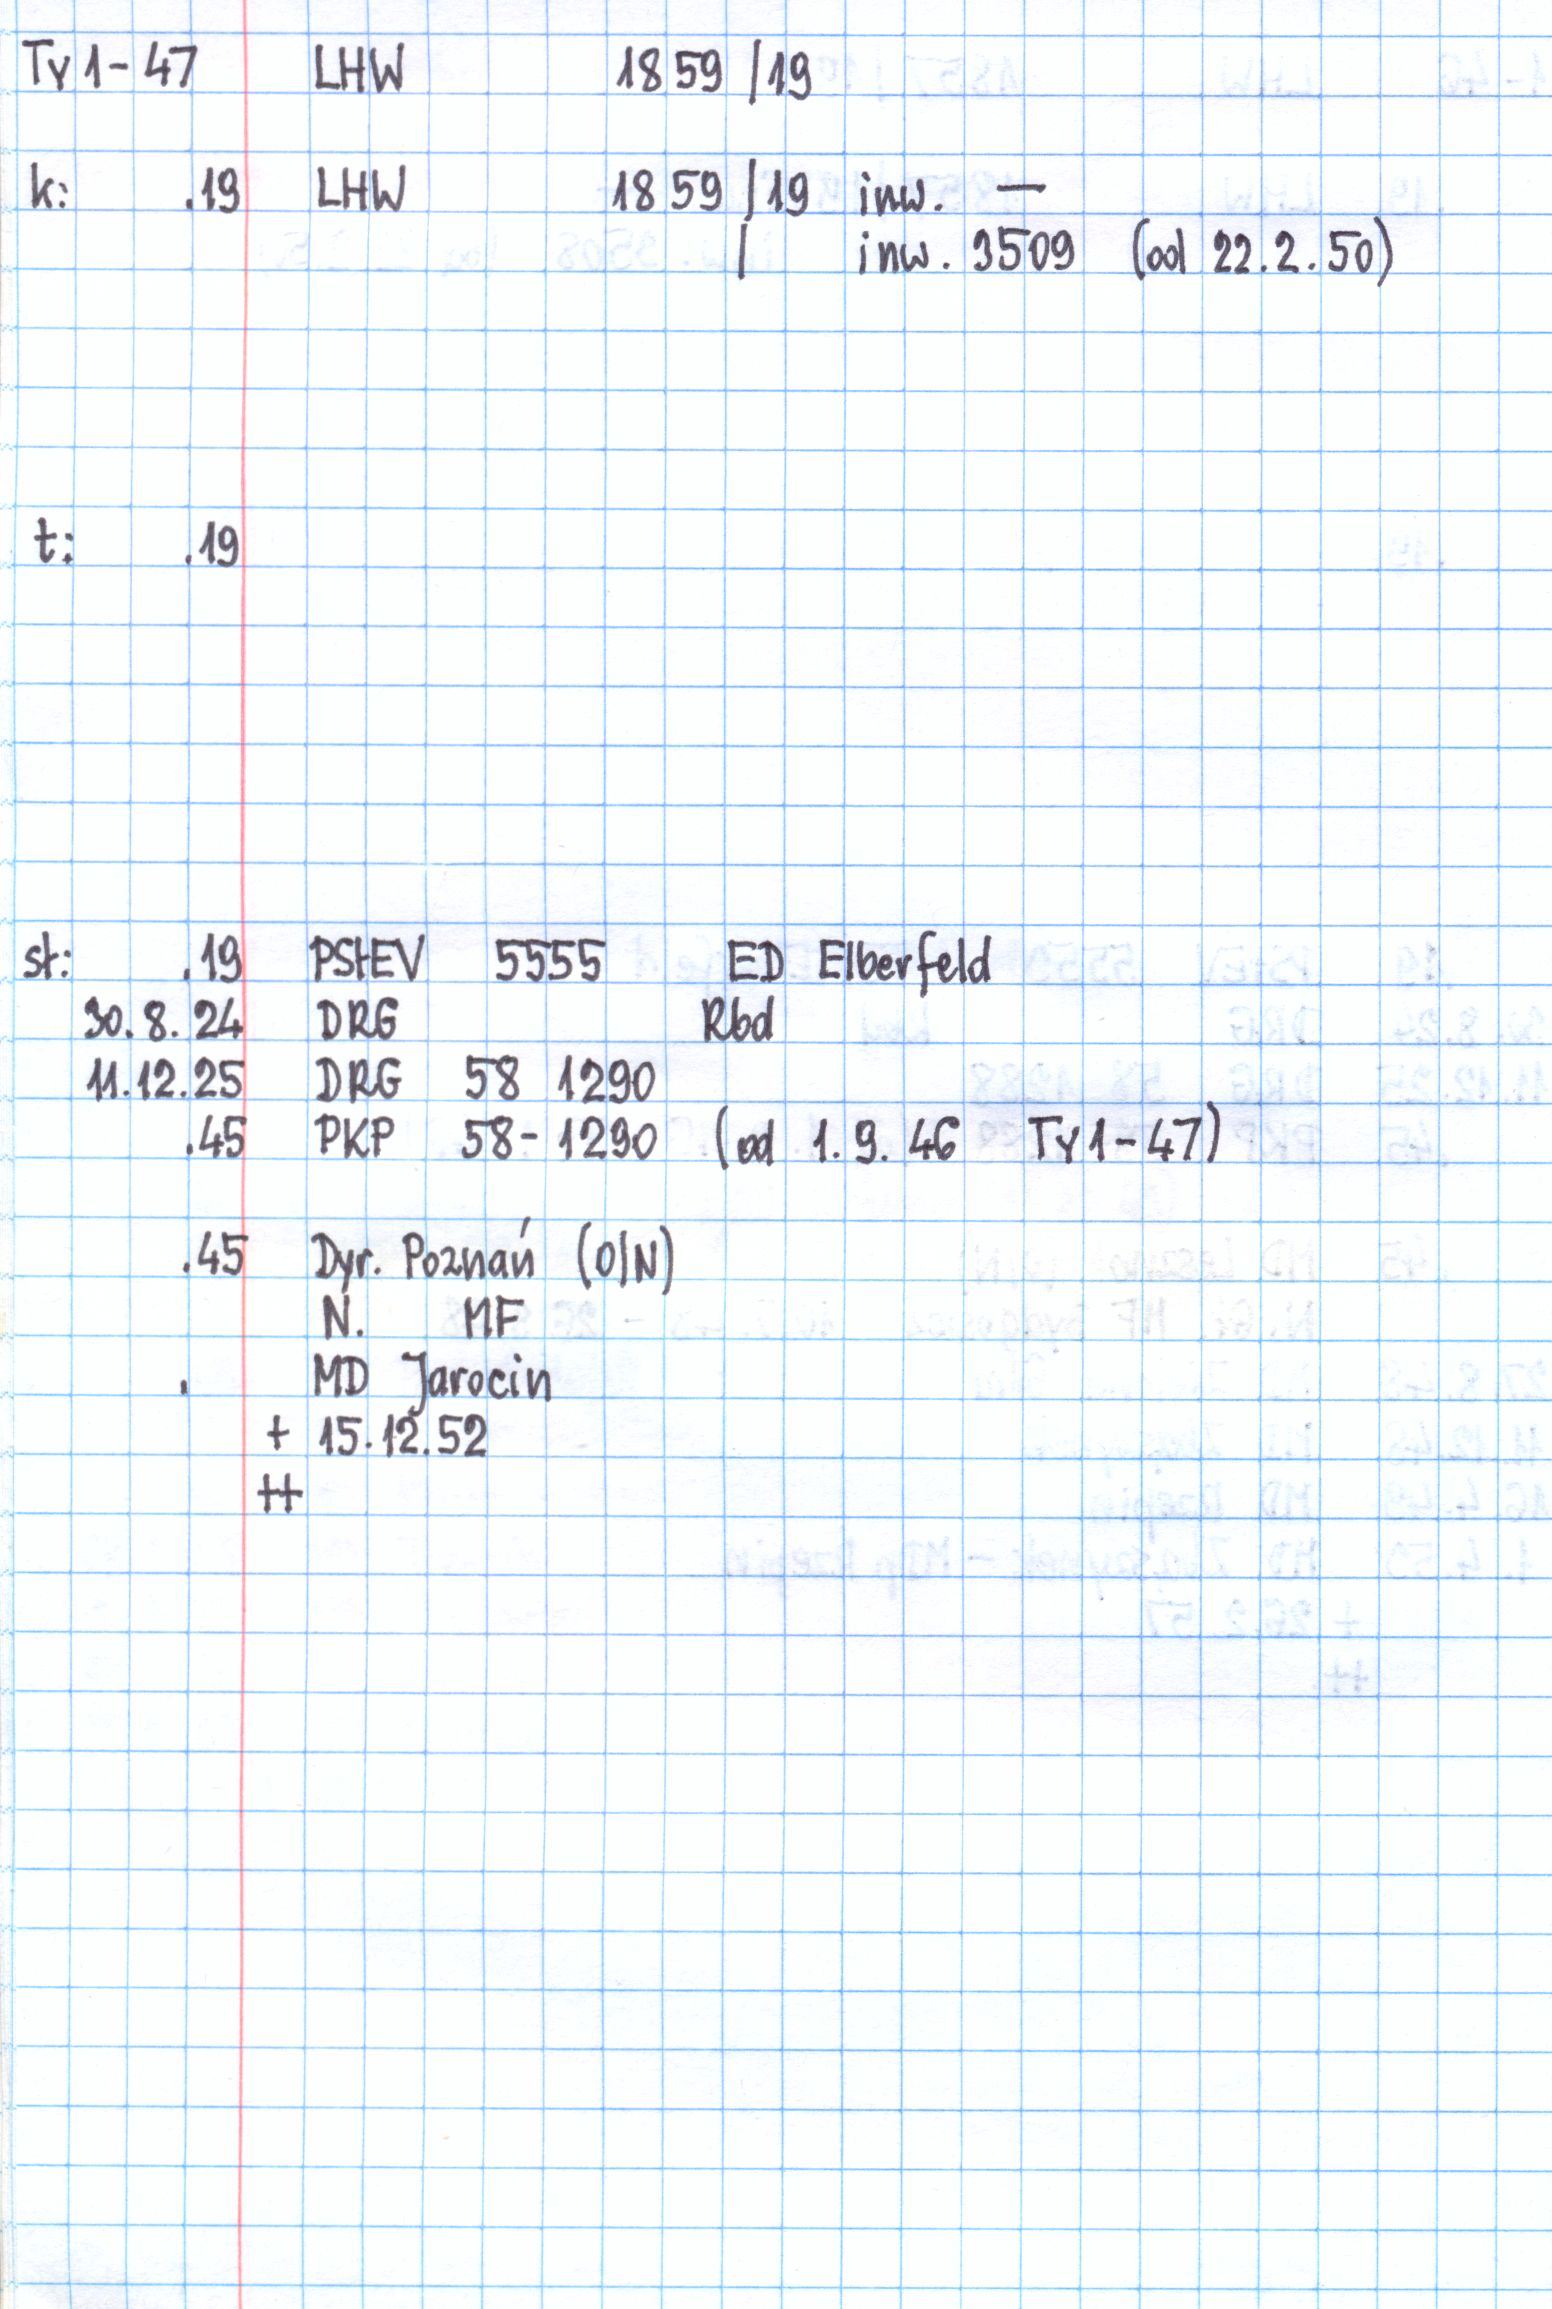 Ty1-47 LHW 1859/19
k: .19 LHW 1859/19 inw. —
/ inw. 3509 (od 22.2.50)
t: .19
st: .19 PStEV 5555 ED Elberfeld
30.8.24 DRG Rbd
11.12.25 DRG 58 1290
.45 PKP 58-1290 (od 1.9.46 Ty1-47)
.45 Dyr. Poznań (O/N)
N. MF
. MD Jarocin
+ 15.12.52
++